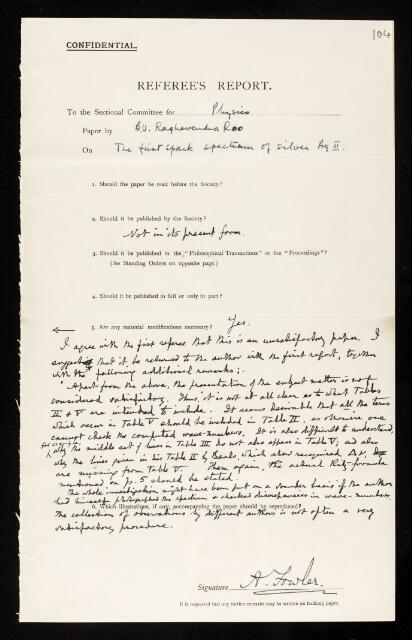 104
CONFIDENTIAL.
REFEREE'S REPORT.
To the Sectional Committee for Physics
Paper by B.V. Raghavendra Rao
On The first spark spectrum of silver Ag II.
1. Should the paper be read before the Society?
2. Should it be published by the Society?
Not in its present form.
3. Should it be published in the "Philosophical Transactions" or the "Proceedings"?
(See Standing Orders on opposite page.)
4. Should it be published in full or only in part?
5. Are any material modifications necessary? Yes.
I agree with the first referee that this is an unsatisfactory paper. I
suggest that it be returned to the author with the first report, together
with the following additional remarks:-
"Apart from the above, the presentation of the subject matter is not
considered satisfactory. Thus, it is not at all clear as to what Tables
II & V are intended to include. It seems desirable that all the terms
which occur in Table V should be included in Table II, as otherwise one
cannot check the computed wave-numbers. It is also difficult to understand,
why the middle set of lines in Table III do not also appear in Table V; and also
why the lines given in his Table II by Beals, which show recognised Δν,
are missing from Table V. Then again, the actual Ritz formula
mentioned on p. 5 should be stated.
The whole investigation might have been put on a sounder basis if the author
had himself photographed the spectrum & checked discrepancies in wave-numbers.
6. Which illustrations, if any, accompanying the paper should be reproduced?
The collection of observations by different authors is not often a very
satisfactory procedure.
Signature A. Fowler.
It is requested that any further remarks may be written on ordinary paper.